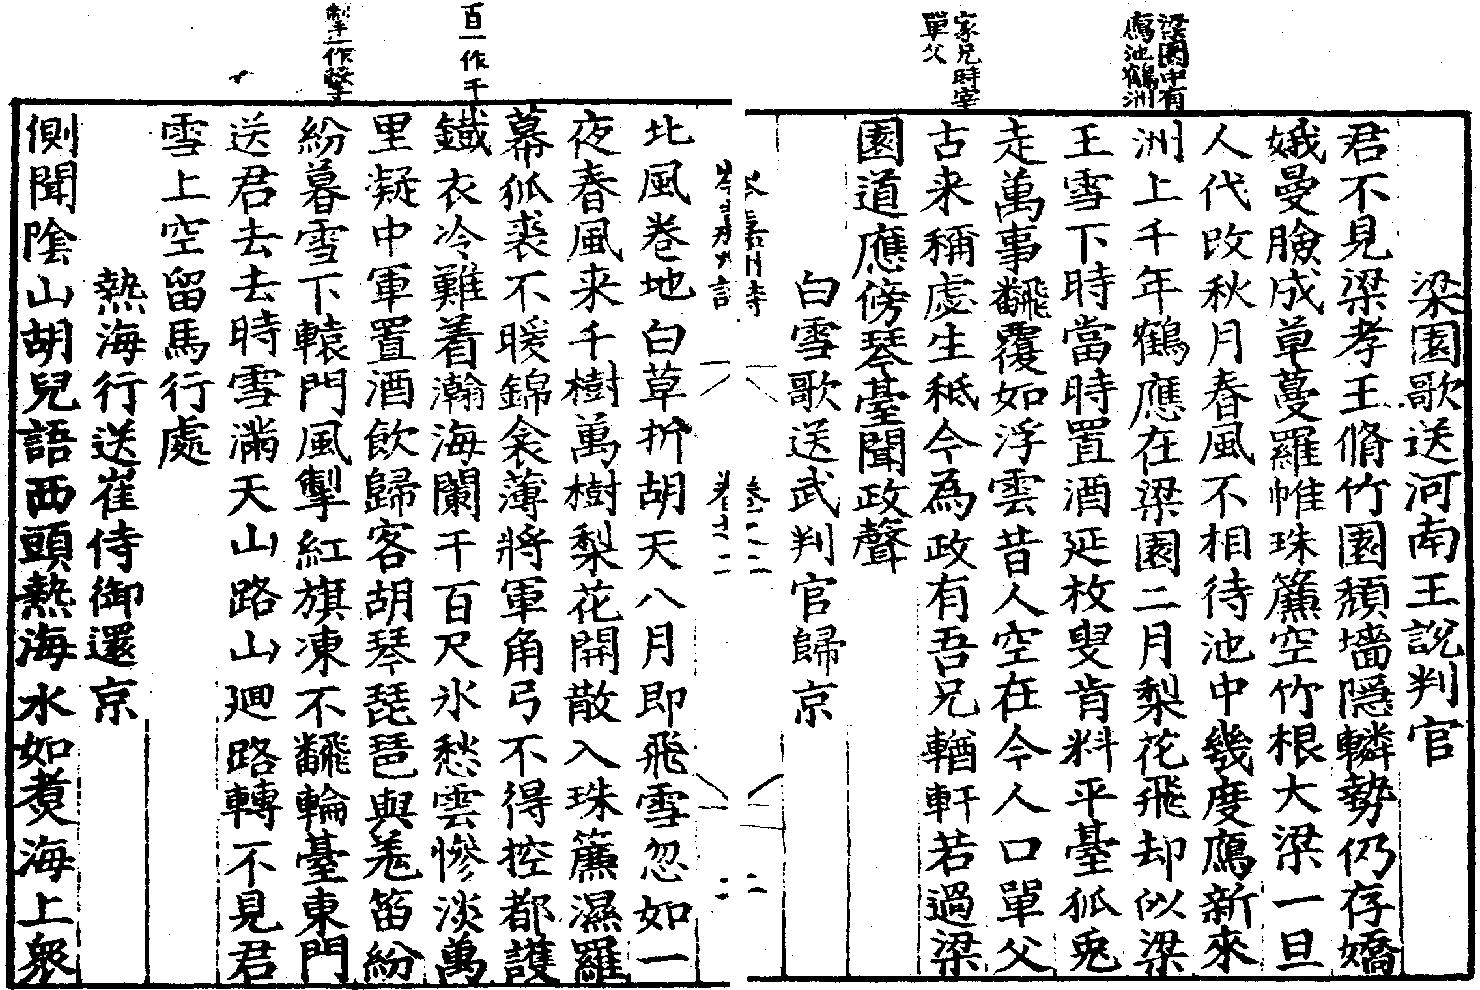 梁園中有
鴈池鶴洲
家兄時宰
單父
梁園歌送河南王說判官
君不見梁孝王脩竹園頹墻隱轔勢仍存嬌
娥曼臉成草蔓羅帷珠簾空竹根大梁一旦
人代改秋月春風不相待池中幾度鴈新來
洲上千年鶴應在梁園二月梨花飛却似梁
王雪下時當時置酒延枚叟肯料平臺狐兎
走萬事飜覆如浮雲昔人空在今人口單父
古来稱宓生秪今為政有吾兄輶軒若過梁
園道應傍琴臺聞政聲
白雪歌送武判官歸京
岑嘉州詩
百一作千
掣一作擎
北風卷地白草折胡天八月即飛雪忽如一
夜春風来千樹萬樹梨花開散入珠簾濕羅
幕狐裘不暖錦衾薄將軍角弓不得控都護
鐵衣冷難着瀚海闌干百尺氷愁雲慘淡萬
里凝中軍置酒飲歸客胡琴琵琶與羌笛紛
紛暮雪下轅門風掣紅旗凍不飜輪臺東門
送君去去時雪滿天山路山迴路轉不見君
雪上空留馬行處
熱海行送崔侍御還京
側聞陰山胡兒語西頭熱海水如煑海上衆